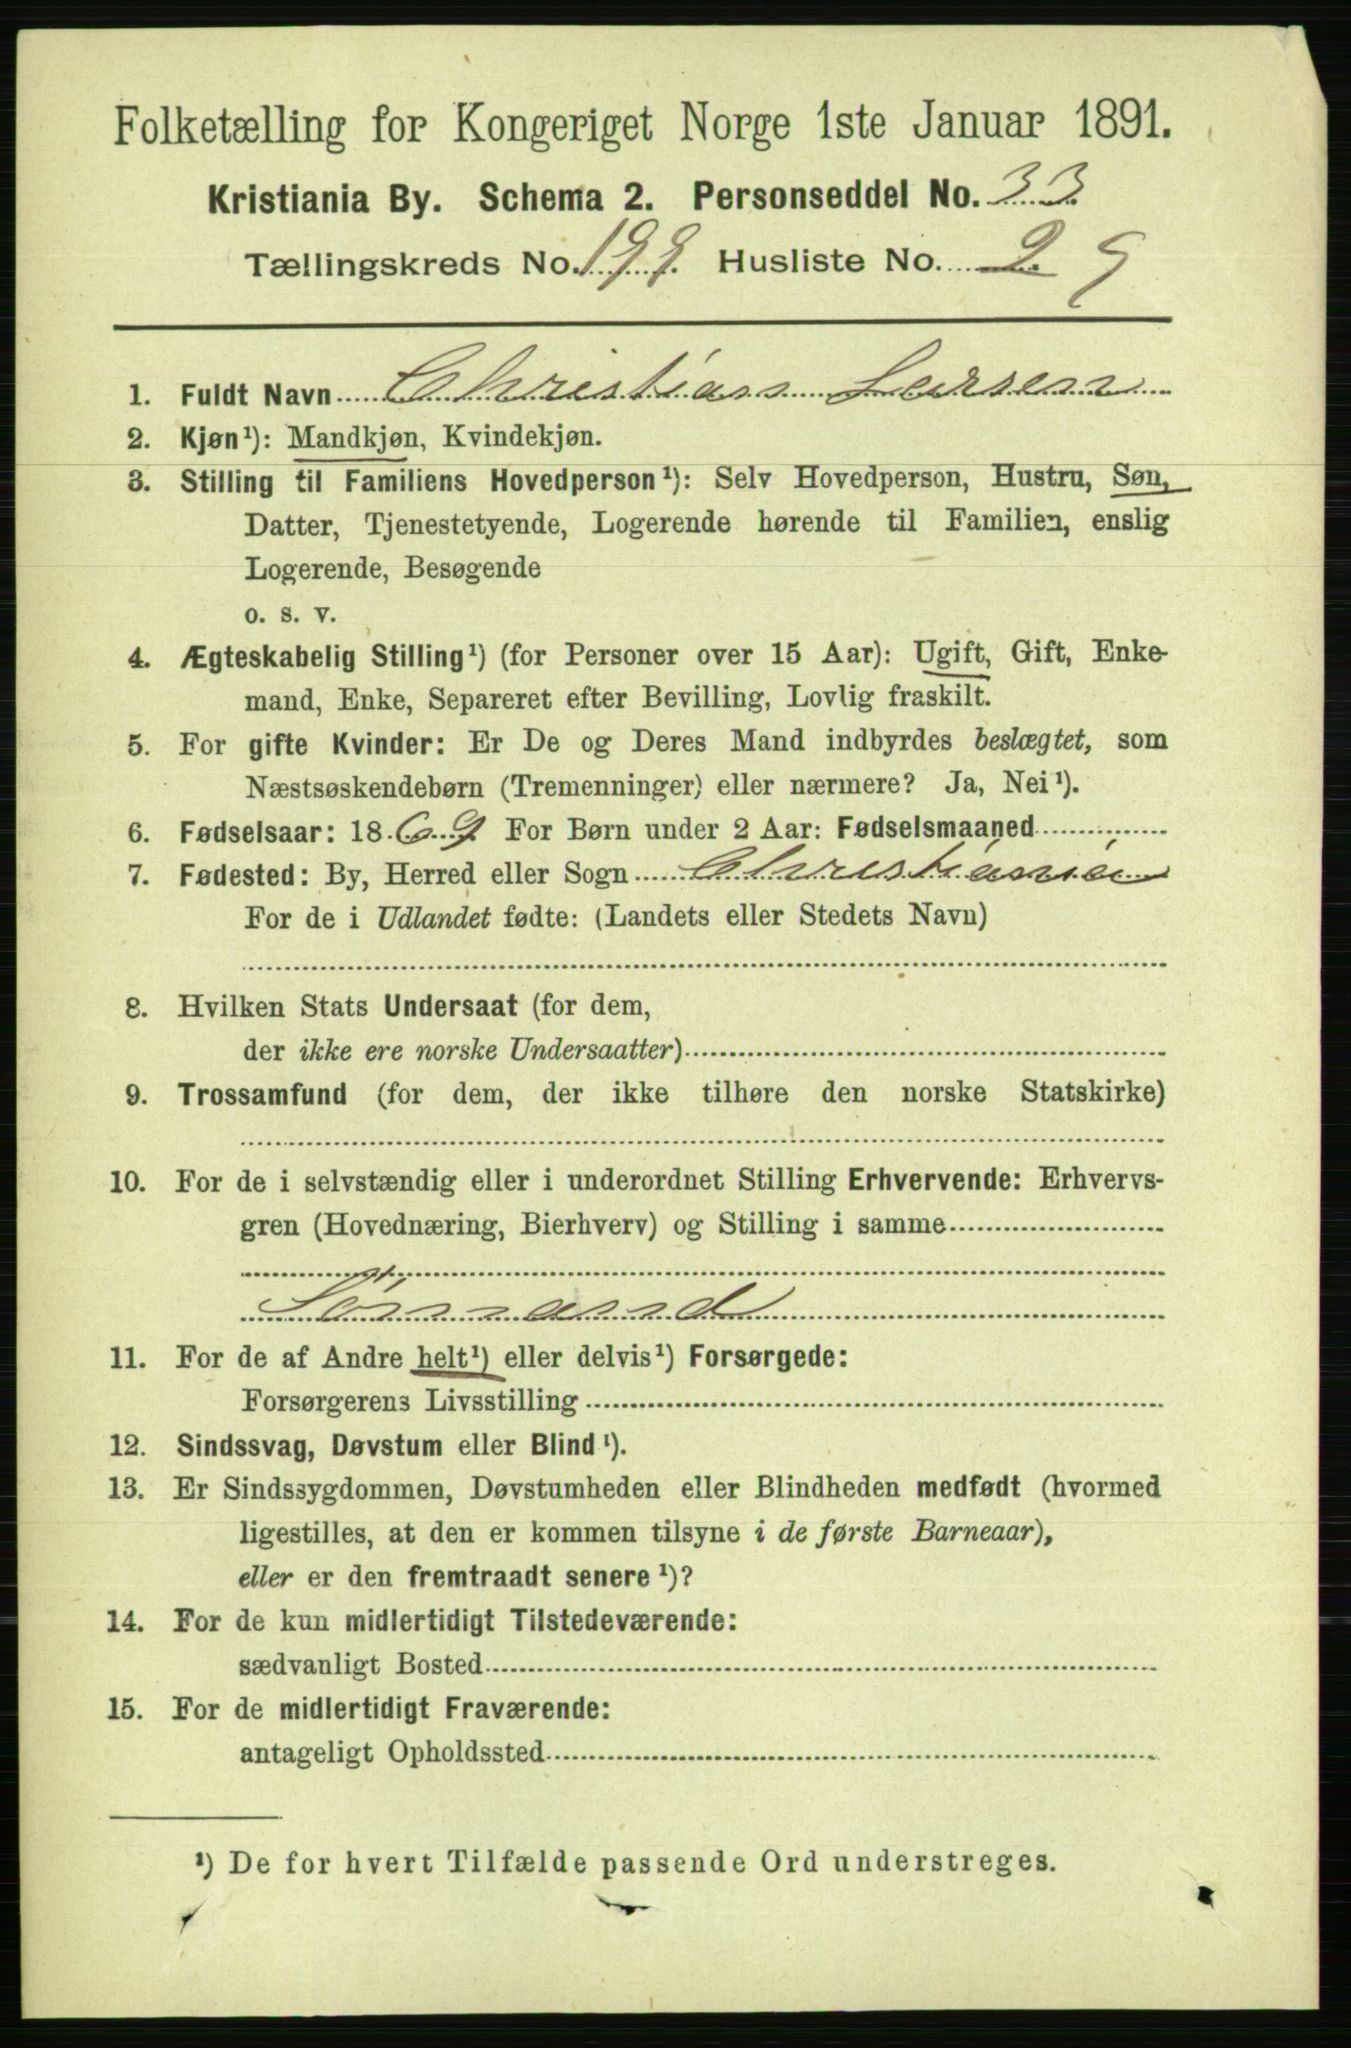 Folketælling for Kongeriget Norge 1ste Januar 1891.
Kristiania By. Schema 2. Personseddel No. 33
Tællingskreds No. 199. Husliste No. 2 9
1. Fuldt Navn Christian Larsen
2. Kjøn¹): Mandkjøn, Kvindekjøn.
3. Stilling til Familiens Hovedperson¹): Selv Hovedperson, Hustru, Søn,
Datter, Tjenestetyende, Logerende hørende til Familien, enslig
Logerende, Besøgende
o. s. v.
4. Ægteskabelig Stilling¹) (for Personer over 15 Aar): Ugift, Gift, Enke-
mand, Enke, Separeret efter Bevilling, Lovlig fraskilt.
5. For gifte Kvinder: Er De og Deres Mand indbyrdes beslægtet, som
Næstsøskendebørn (Tremenninger) eller nærmere? Ja, Nei¹).
6. Fødselsaar: 1869 For Børn under 2 Aar: Fødselsmaaned
7. Fødested: By, Herred eller Sogn Christiania
For de i Udlandet fødte: (Landets eller Stedets Navn)
8. Hvilken Stats Undersaat (for dem,
der ikke ere norske Undersaatter)
9. Trossamfund (for dem, der ikke tilhøre den norske Statskirke)
10. For de i selvstændig eller i underordnet Stilling Erhvervende: Erhvervs-
gren (Hovednæring, Bierhverv) og Stilling i samme
Sömand
11. For de af Andre helt¹) eller delvis¹) Forsørgede:
Forsørgerens Livsstilling
12. Sindssvag, Døvstum eller Blind¹).
13. Er Sindssygdommen, Døvstumheden eller Blindheden medfødt (hvormed
ligestilles, at den er kommen tilsyne i de første Barneaar),
eller er den fremtraadt senere¹)?
14. For de kun midlertidigt Tilstedeværende:
sædvanligt Bosted
15. For de midlertidigt Fraværende:
antageligt Opholdssted
¹) De for hvert Tilfælde passende Ord understreges.